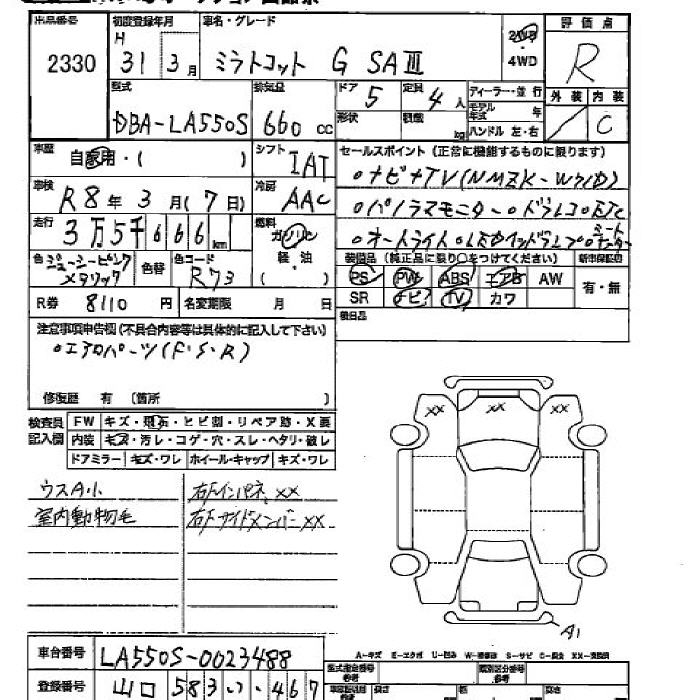 出品番号 初度登録年月 車名・グレード 評価点
2330 H 31 3月 ミラトコット G SAⅢ 2WD・4WD R
型式 排気量 ドア 5 定員 4人 ディーラー・並行 外装 内装
DBA-LA550S 660cc 形状 積載 kg モデル年式 年 ハンドル 左・右 C
車歴 自家用・( ) シフト IAT セールスポイント(正常に機能するものに限ります)
車検 R8年3月(7日) 冷房 AAC ○ナビ○TV(NMZK-W71D)
走行 3万5千666km 燃料 ガソリン・軽・油 ( ) ○パノラマモニター○ドラレコ○ETC
○オートライト
色 ジューシーピンクメタリック 色替 色コード R73 装備品(純正品に限り○をつけてください) 新車保証書
PS PW ABS エアB AW 有・無
R券 8110円 名変期限 月 日 SR ナビ TV カワ
後日品
注意事項申告欄(不具合内容等は具体的に記入して下さい)
○エアロパーツ(F・S・R)
修復歴 有 (箇所 )
検査員記入欄 FW キズ・飛石・ヒビ割・リペア跡・X要
内装 キズ・汚レ・コゲ・穴・スレ・ヘタリ・破レ
ドアミラー キズ・ワレ ホイール・キャップ キズ・ワレ
XX XX XX
ウスA小 右F インパネ XX
室内動物毛 右F サイドメンバー XX
A1
A-キズ E-エクボ U-凹み S-サビ
車台番号 LA550S-0023488
登録番号 山口 583 い・467